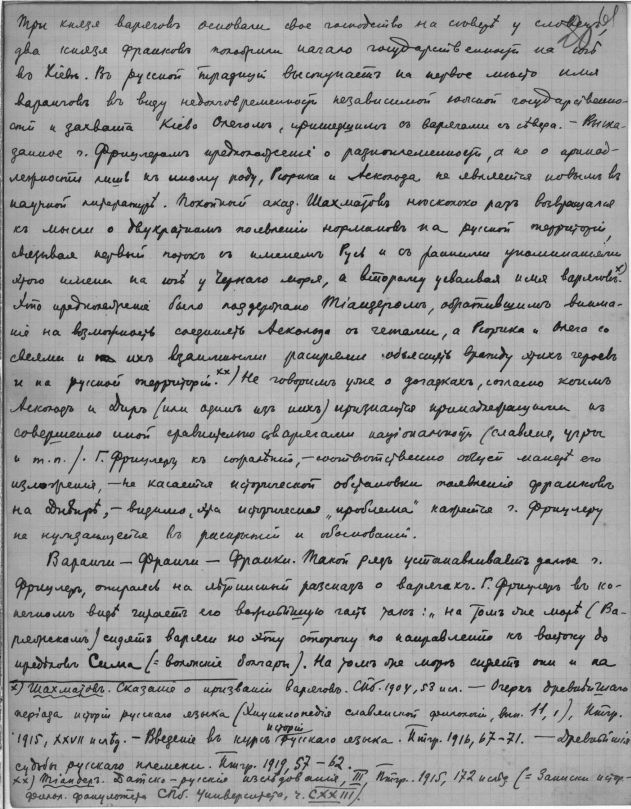 Три князя варяговъ основали свое господство на сѣверѣ у словенъ,
два князя франковъ положили начало государственности на югѣ
въ Кіевѣ. Въ русской традиціи выступаетъ на первое мѣсто имя
варанговъ въ виду недолговременности независимой южной государственно-
сти и захвата Кіева Олегомъ, пришедшимъ съ варягами съ сѣвера. – Выска-
занное г. Фрицлеромъ предположеніе о разноплеменности, а не о принад-
лежности лишь къ иному роду, Рюрика и Аскольда не является новымъ въ
научной литературѣ. Покойный акад. Шахматовъ нѣсколько разъ возвращался
къ мысли о двукратномъ появленіи нормановъ на русской территоріи,
связывая первый потокъ съ именемъ Русь и съ ранними упоминаніями
этого имени на югѣ у Чернаго моря, а второму усваивая имя варяговъ. x)
Это предположеніе было поддержано Тіандеромъ, обратившимъ внима-
ніе на возможность соединять Аскольда съ гетами, а Рюрика и Олега со
свеями и ихъ взаимными распрями объяснить вражду этихъ героевъ
и на русской территоріи. xx) Не говоримъ уже о догадкахъ, согласно коимъ
Аскольдъ и Диръ (или одинъ изъ нихъ) признаются принадлежащими къ
совершенно иной сравнительно съ варягами національности (славяне, угры
и т. п.). Г. Фрицлеръ къ сожалѣнію, – соотвѣтственно общей манерѣ его
изложенія, – не касается исторической обстановки появленія франковъ
на Днѣпрѣ, – видимо, эта историческая „проблема“ кажется г. Фрицлеру
не нуждающейся въ раскрытіи и обоснованіи.
Варанги – Франги – Франки. Такой рядъ устанавливаетъ далѣе г.
Фрицлеръ, опираясь на лѣтописный разсказъ о варягахъ. Г. Фрицлеръ въ ко-
нечномъ видѣ читаетъ его важнѣйшую часть такъ: „на томъ же морѣ (Ва-
ряжскомъ) сидятъ варяги по эту сторону по направленію къ востоку до
предѣловъ Сима (= волжскіе болгары). На томъ же морѣ сидятъ они и на
x) Шахматовъ. Сказаніе о призваніи варяговъ. Спб. 1904, 53 и сл. – Очеркъ древнѣйшаго
періода исторіи русскаго языка (Энциклопедія славянской филологіи, вып. 11, 1), Птгр.
1915, XXVII и слѣд. – Введеніе въ курсъ исторіи русскаго языка. Птгр. 1916, 67–71. – Древнѣйшія
судьбы русскаго племени. Птгр. 1919, 57–62.
xx) Тіандеръ. Датско-русскія изслѣдованія, III Птгр. 1915, 172 и слѣд (= Записки истор-
филол. факультета Спб. Университета, ч. CXXIII).